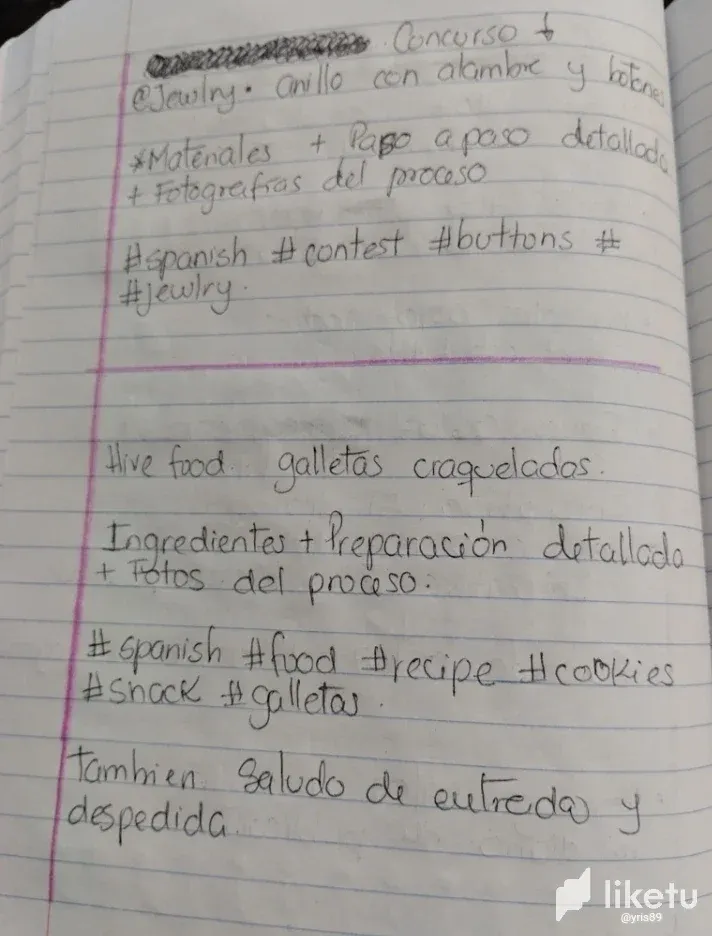 Concurso ↓
@Jewlry. anillo con alambre y botones
*Materiales + Paso a paso detallado
+ Fotografías del proceso
#spanish #contest #buttons #
#jewlry.
Hive food. galletas craqueladas.
Ingredientes + Preparación detallada
+ Fotos del proceso.
#spanish #food #recipe #cookies
#snack #galletas.
tambien saludo de entreda y
despedida.
liketu
@yris89